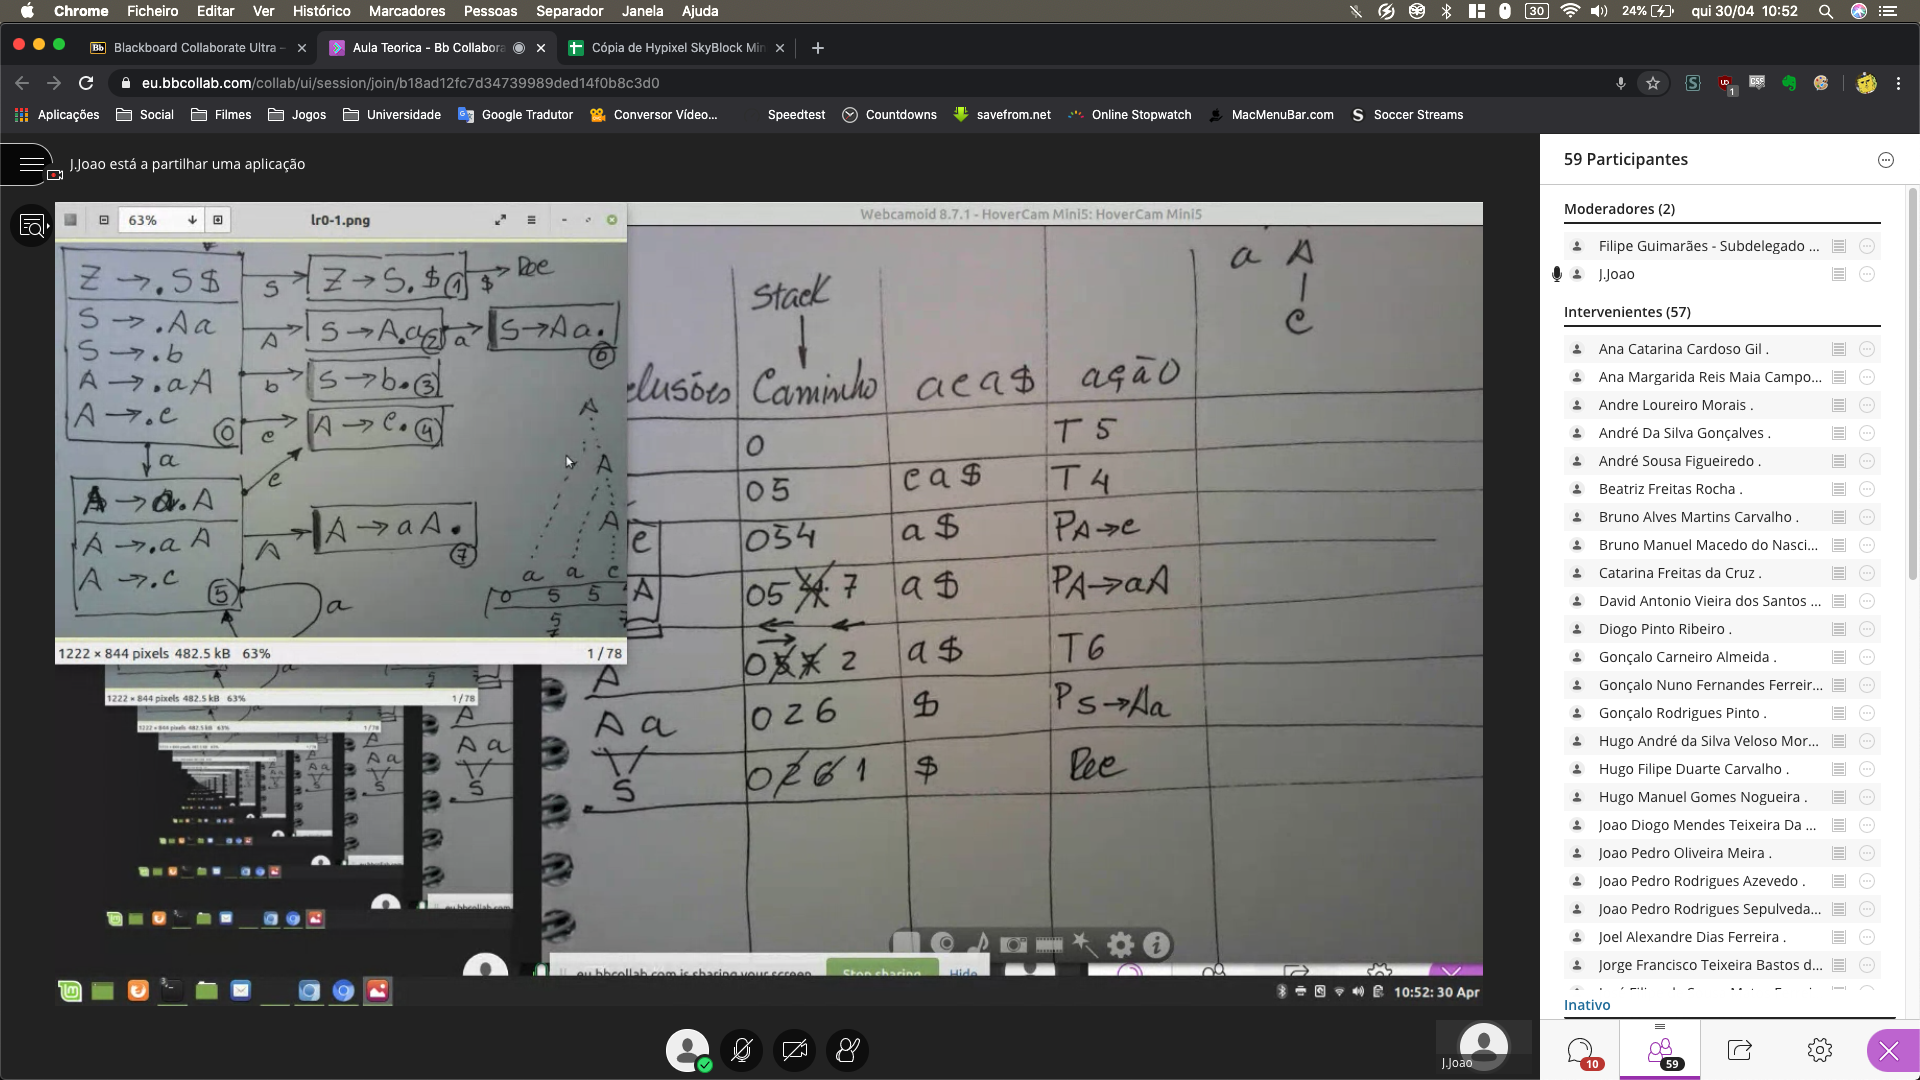 Chrome Ficheiro Editar Ver Histórico Marcadores Pessoas Separador Janela Ajuda
30 24% qui 30/04 10:52
Blackboard Collaborate Ultra –
Aula Teorica - Bb Collabora
Cópia de Hypixel SkyBlock Min
eu.bbcollab.com/collab/ui/session/join/b18ad12fc7d34739989ded14f0b8c3d0
Aplicações Social Filmes Jogos Universidade Google Tradutor Conversor Vídeo... Speedtest Countdowns savefrom.net Online Stopwatch MacMenuBar.com Soccer Streams
J.Joao está a partilhar uma aplicação
63% lr0-1.png
Webcamoid 8.7.1 - HoverCam Mini5: HoverCam Mini5
Z → .S$
S → .Aa
S → .b
A → .aA
A → .c
0
S
Z → S.$ 1
$
Rec
A
S → A.a 2
a
S → Aa. 6
b
S → b. 3
c
A → c. 4
a
c
A → a.A
A → .a A
A → .c
5
A
A → aA. 7
a
A
A
A
a a c
0 5 5
5
7
1222 × 844 pixels 482.5 kB 63% 1 / 78
a A
c
Stack
clusões Caminho aca$ ação
0 T 5
05 ca$ T 4
c 054 a$ PA→c
A 05 7 a$ PA→aA
A 0 2 a$ T6
A a 026 $ PS→Aa
S 0261 $ Rec
1222 × 844 pixels 482.5 kB 63% 1 / 78
eu.bbcollab.com is sharing your screen Stop sharing Hide
10:52: 30 Apr
J.Joao
59 Participantes
Moderadores (2)
Filipe Guimarães - Subdelegado ...
J.Joao
Intervenientes (57)
Ana Catarina Cardoso Gil .
Ana Margarida Reis Maia Campo...
Andre Loureiro Morais .
André Da Silva Gonçalves .
André Sousa Figueiredo .
Beatriz Freitas Rocha .
Bruno Alves Martins Carvalho .
Bruno Manuel Macedo do Nasci...
Catarina Freitas da Cruz .
David Antonio Vieira dos Santos ...
Diogo Pinto Ribeiro .
Gonçalo Carneiro Almeida .
Gonçalo Nuno Fernandes Ferreir...
Gonçalo Rodrigues Pinto .
Hugo André da Silva Veloso Mor...
Hugo Filipe Duarte Carvalho .
Hugo Manuel Gomes Nogueira .
Joao Diogo Mendes Teixeira Da ...
Joao Pedro Oliveira Meira .
Joao Pedro Rodrigues Azevedo .
Joao Pedro Rodrigues Sepulveda...
Joel Alexandre Dias Ferreira .
Jorge Francisco Teixeira Bastos d...
Inativo
10
59